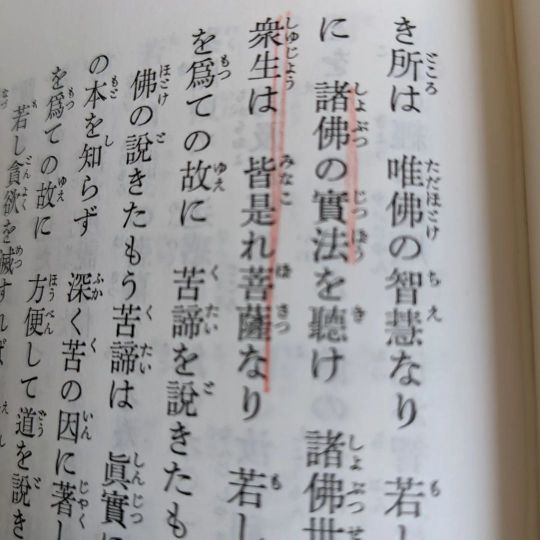 き所は 唯佛の智慧なり 若し
に 諸佛の實法を聽け 諸佛世
衆生は 皆是れ菩薩なり 若し
を爲ての故に 苦諦を說きたも
佛の說きたもう苦諦は 眞實に
の本を知らず 深く苦の因に著し
を爲ての故に 方便して道を說き
若し貪欲を滅すれば